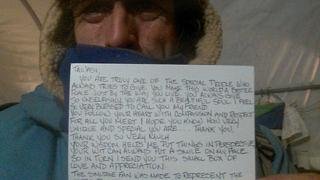 YOU ARE TRULY ONE OF THE SPECIAL PEOPLE WHO
ALWAYS TRIES TO GIVE. YOU MAKE THIS WORLD A BETTER
PLACE JUST BY THE WAY YOU LIVE. YOU ALWAYS GIVE
SO UNSELFISHLY. YOU ARE SUCH A BEAUTIFUL SOUL. I FEEL
SO VERY BLESSED TO CALL YOU MY FRIEND.
YOU FOLLOW YOUR HEART WITH COMPASSION AND RESPECT
FOR ALL YOU MEET. I HOPE YOU KNOW HOW VERY
UNIQUE AND SPECIAL YOU ARE.... THANK YOU,
THANK YOU SO VERY MUCH
YOUR WISDOM HELPS ME PUT THINGS IN PERSPECTIVE
YOUR WIT CAN ALWAYS PUT A SMILE ON MY FACE.
SO IN TURN I SEND YOU THIS SMALL BOX OF
LOVE AND APPRECIATION.
THE SMUDGE FAN WAS MADE TO REPRESENT THE